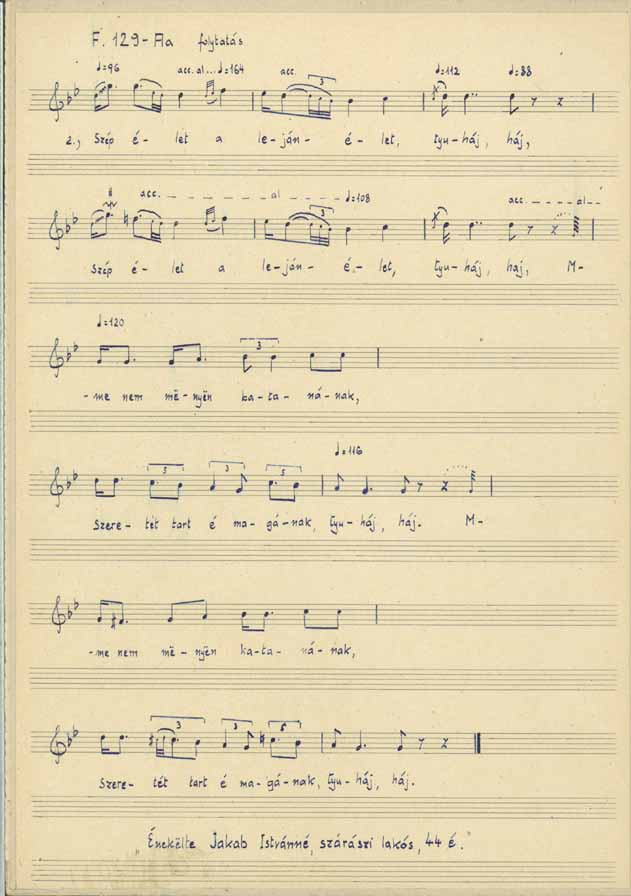 F. 129-Aa folytatás
♩=96 acc. al...♩=164 acc. 3 ♩=112 ♩=88
2., Szép é- let a le-ján- é- let, tyu-háj, háj,
acc. _ _ _ al _ _ _ 3 ♩=108 acc. _ _ _ al _ _
Szép é- let a le-ján- é- let, tyu-háj, haj, M-
♩=120 3
-me nem më-nyën ka-ta- ná-nak,
3 3 5 ♩=116
Szere- tët tart é ma-gá-nak, tyu-háj, háj. M-
-me nem më- nyën ka-ta- ná-nak,
3 3 5
Szere- tét tart é ma-gá-nak, tyu-háj, háj.
"Énekëlte Jakab Istvánné, szárászi lakós, 44 é."